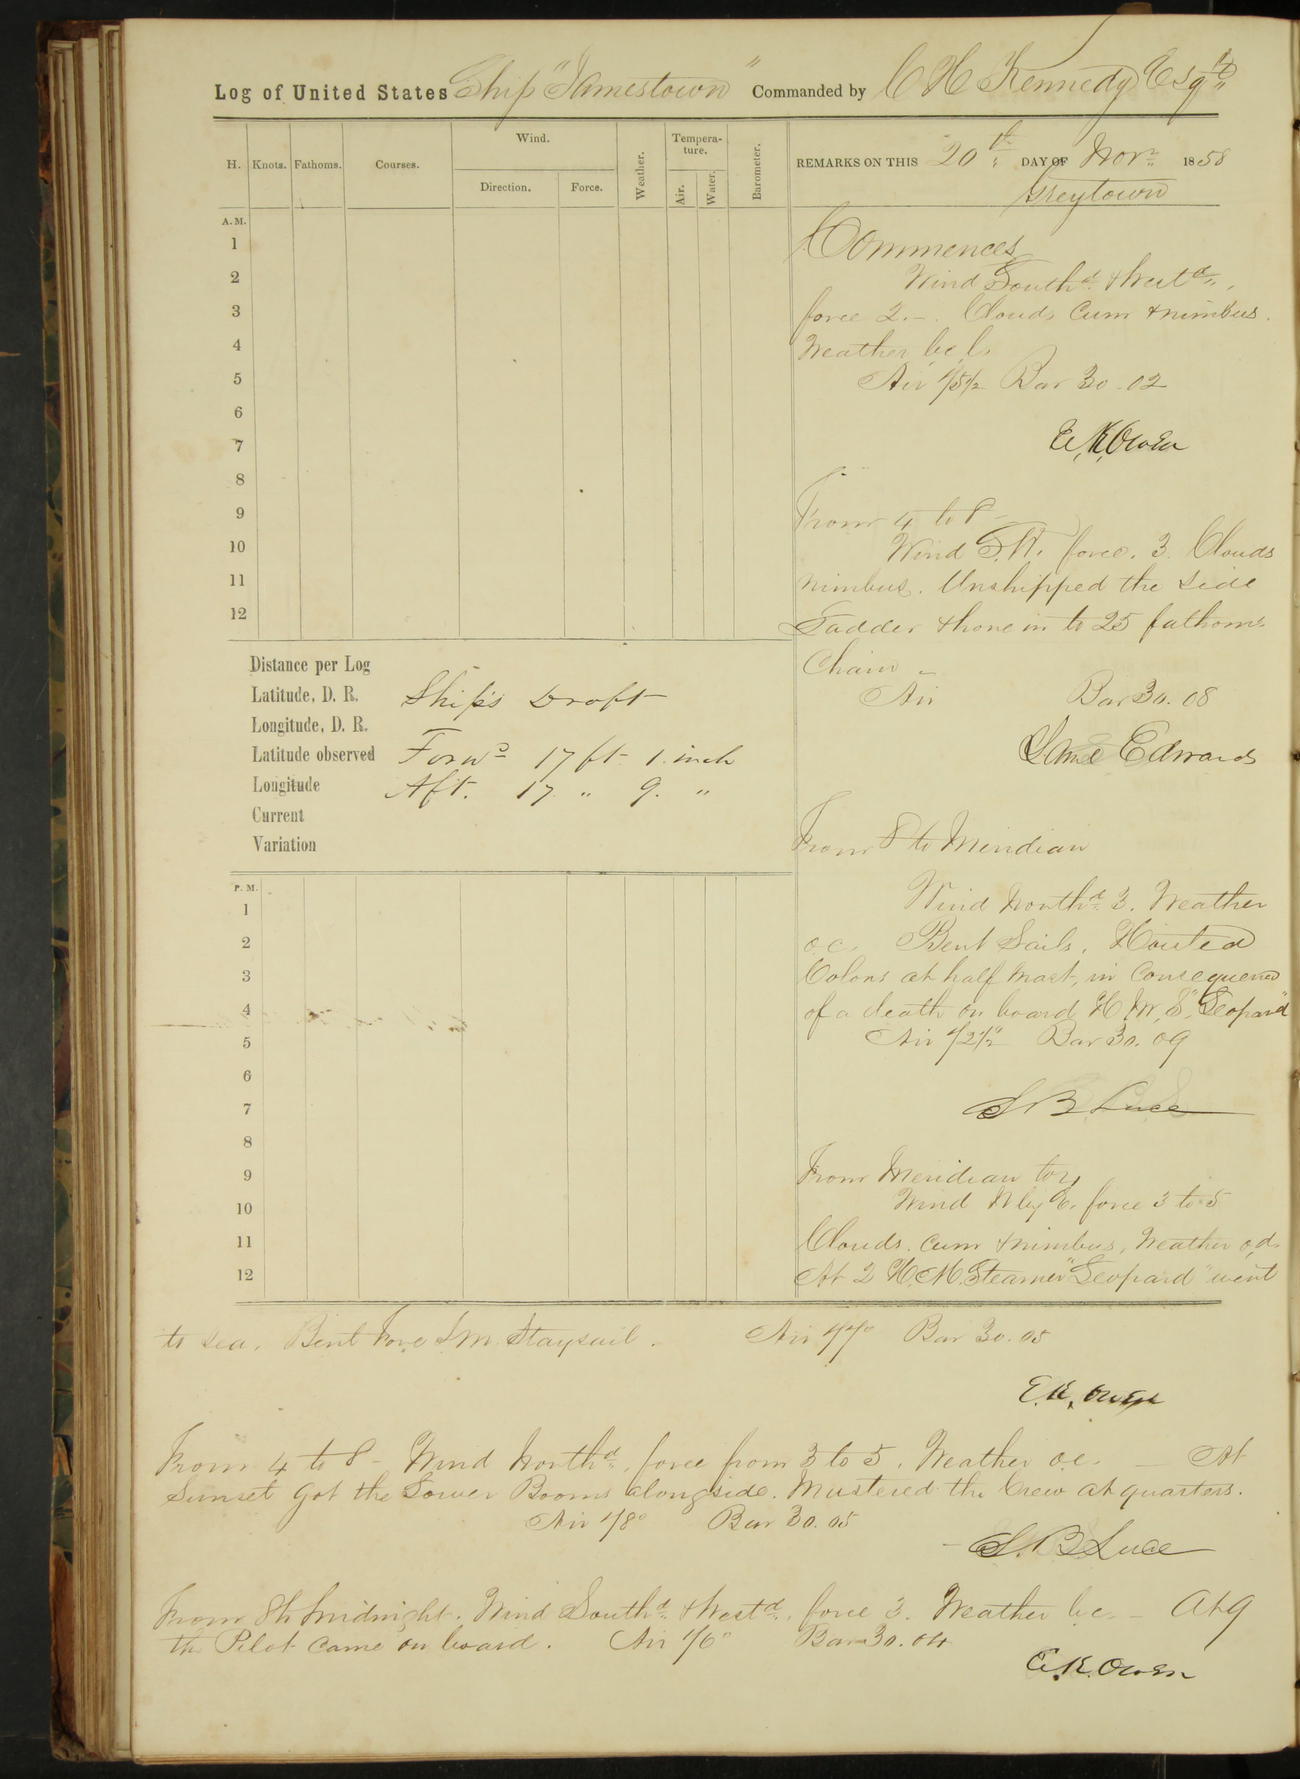 Log of United States Ship "Jamestown" Commanded by C H Kennedy Esqre
H. Knots. Fathoms. Courses. Wind. Direction. Force. Weather. Temperature. Air. Water. Barometer.
REMARKS ON THIS 20th DAY OF Novr 1858
Greytown
A. M.
1
2
3
4
5
6
7
8
9
10
11
12
Commences
Wind Southd & Westd.
force 2. Clouds Cum & nimbus.
Weather b.c.
Air 75½ Bar 30.02
E. K. Owen
From 4 to 8
Wind S.W. force. 3. Clouds
nimbus. Unshipped the side
Ladder & hove in to 25 fathoms
Chain
Air Bar 30.08
Edwards
Distance per Log
Latitude, D. R.
Longitude, D. R.
Latitude observed
Longitude
Current
Variation
Ship's Draft
Forwd 17 ft. 1. inch
Aft. 17. " 9. "
From 8 to Meridian
Wind Northd 3. Weather
o.c. Bent Sails. Hoisted
Colors at half mast, in Consequence
of a death on board H. M. S. "Leopard"
Air 72½° Bar 30.09
S B Luce
From Meridian to 4
Wind N by E. force 3 to 5
Clouds. Cum & nimbus, Weather o.d.
At 2 H. M. Steamer "Leopard" went
P. M.
1
2
3
4
5
6
7
8
9
10
11
12
to sea. Bent Fore T.M. Staysail. Air 77° Bar 30.05
E. K. Owen
From 4 to 8 - Wind Northd, force from 3 to 5. Weather o.c. — At
Sunset got the Lower Booms alongside. Mustered the Crew at quarters.
Air 78° Bar 30.05
S. B. Luce
From 8 to midnight. Wind Southd & Westd, force 3. Weather b.c. — At 9
the Pilot came on board. Air 76° Bar 30.04
E. K. Owen